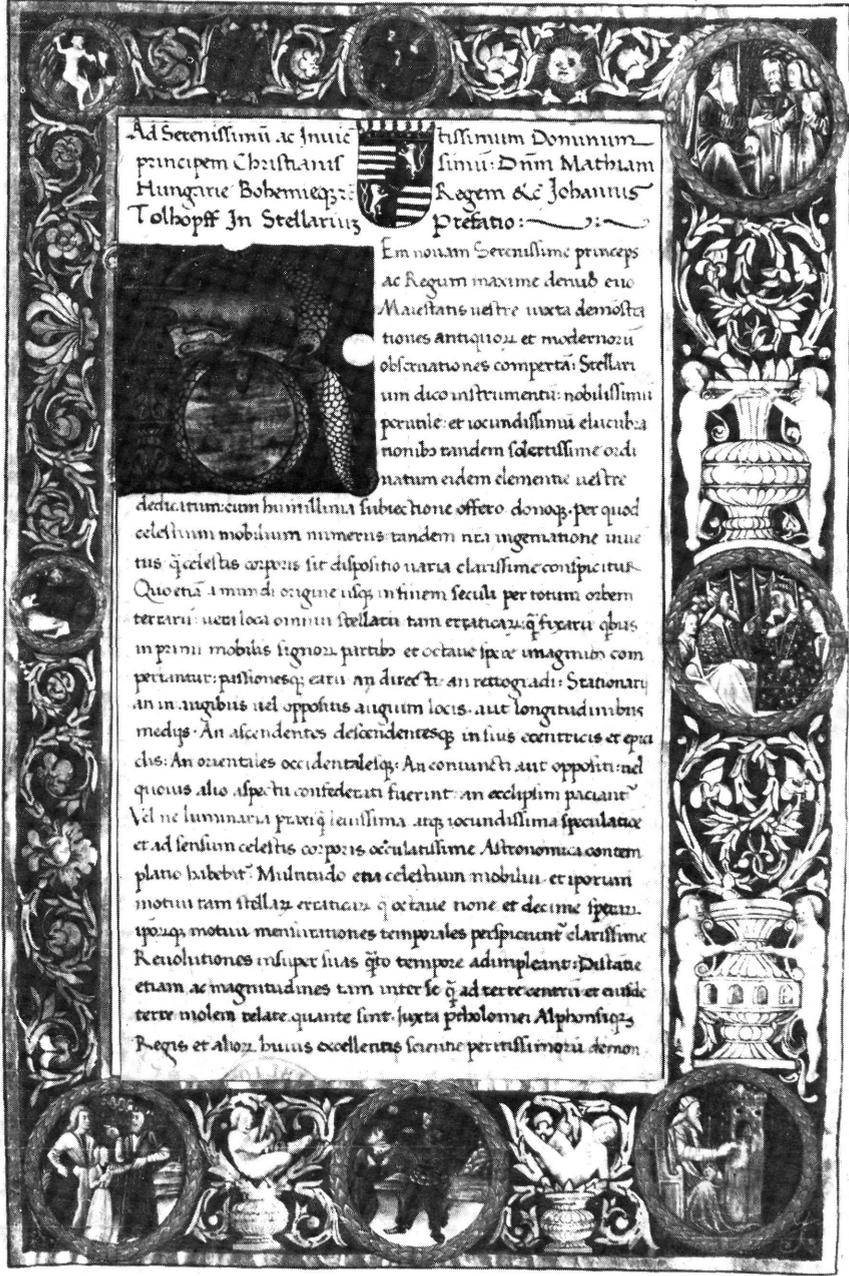 Ad Serenissimū ac Inuic tissimum Dominum
principem Christianis simū: Dnm̄ Mathiam
Hungarie Bohemieqȝ rē Regem &c̄ Johannis
Tolhopff In Stellariuȝ Prefatio:
Em nouam Serenissime princeps
ac Regum maxime denub euo
Maiestatis uestre iuxta demōstra
tiones antiquoꝝ et modernorū
obseruationes compertā: Stellari
um dico instrumentū: nobilissimū
perutile: et iocundissimū elucubra
tionibꝫ tandem solertissime ordi
natum eidem clementie uestre
dedicatum: cum humillima subiectione offero donoqꝫ. per quod
celestium mobilium numerus tandem rita ingeniatione inue
tus q̄ celestis corporis sit dispositio uaria clarissime conspicitur
Quo etiā a mundi origine usqꝫ in finem seculi per totum orbem
terrarū: ueri loca omniū stellarū tam erraticaꝝ: q̄ fixarū qbus
in primi mobilis signoꝝ partibꝫ et octaue sperę imaginibꝫ com
periantur: passionesqꝫ earū an directi an retrogradi: Stationarij
an in augibus uel oppositis augium locis. aut longitudinibus
medijs. An ascendentes descendentesqꝫ in suis ecentricis et epici
clis: An orientales occidentalesqꝫ: An coniuncti aut oppositi: uel
quouis alio aspectu confederati fuerint: an ecclipsim paciant᷑
Vel ne luminaria praxi q̄ leuissima atqꝫ iocundissima speculatiōe
et ad sensum celestis corporis occulatissime Astronomica contem
platio habebit᷑. Multitudo etiā celestium mobiliū et iporum
motuū tam stellaꝝ erraticaꝝ q̄ octaue none et decime speraꝝ
ipoꝝqꝫ motuū mensurationes temporales perspiciunt᷑ clarissime
Reuolutiones insuper suas q̄to tempore adimpleant: Distātie
etiam ac magnitudines tam inter se q̄ ad terre centrū et eiusdē
terre molem relate quante sint. Juxta ptholomei Alphonsiqꝫ
Regis et alioꝝ huius excellentis scientie peritissimorū demon